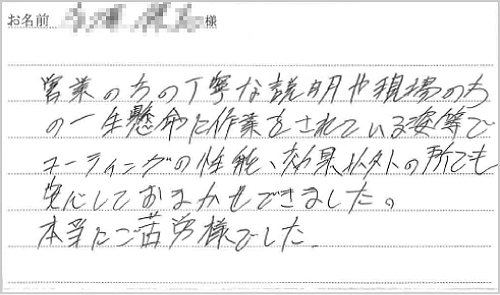 お名前 様
営業の方の丁寧な説明や現場の方
の一生懸命に作業をされている姿等で
コーティングの性能、効果以外の所でも
安心しておまかせできました。
本当にご苦労様でした。